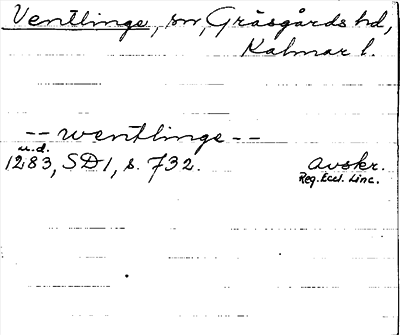 Ventlinge, sn, Gräsgårds hd,
Kalmar l.
-- wentlinge --
u.d.
1283, SD1, s. 732. Avskr.
Reg. Eccl. Linc.